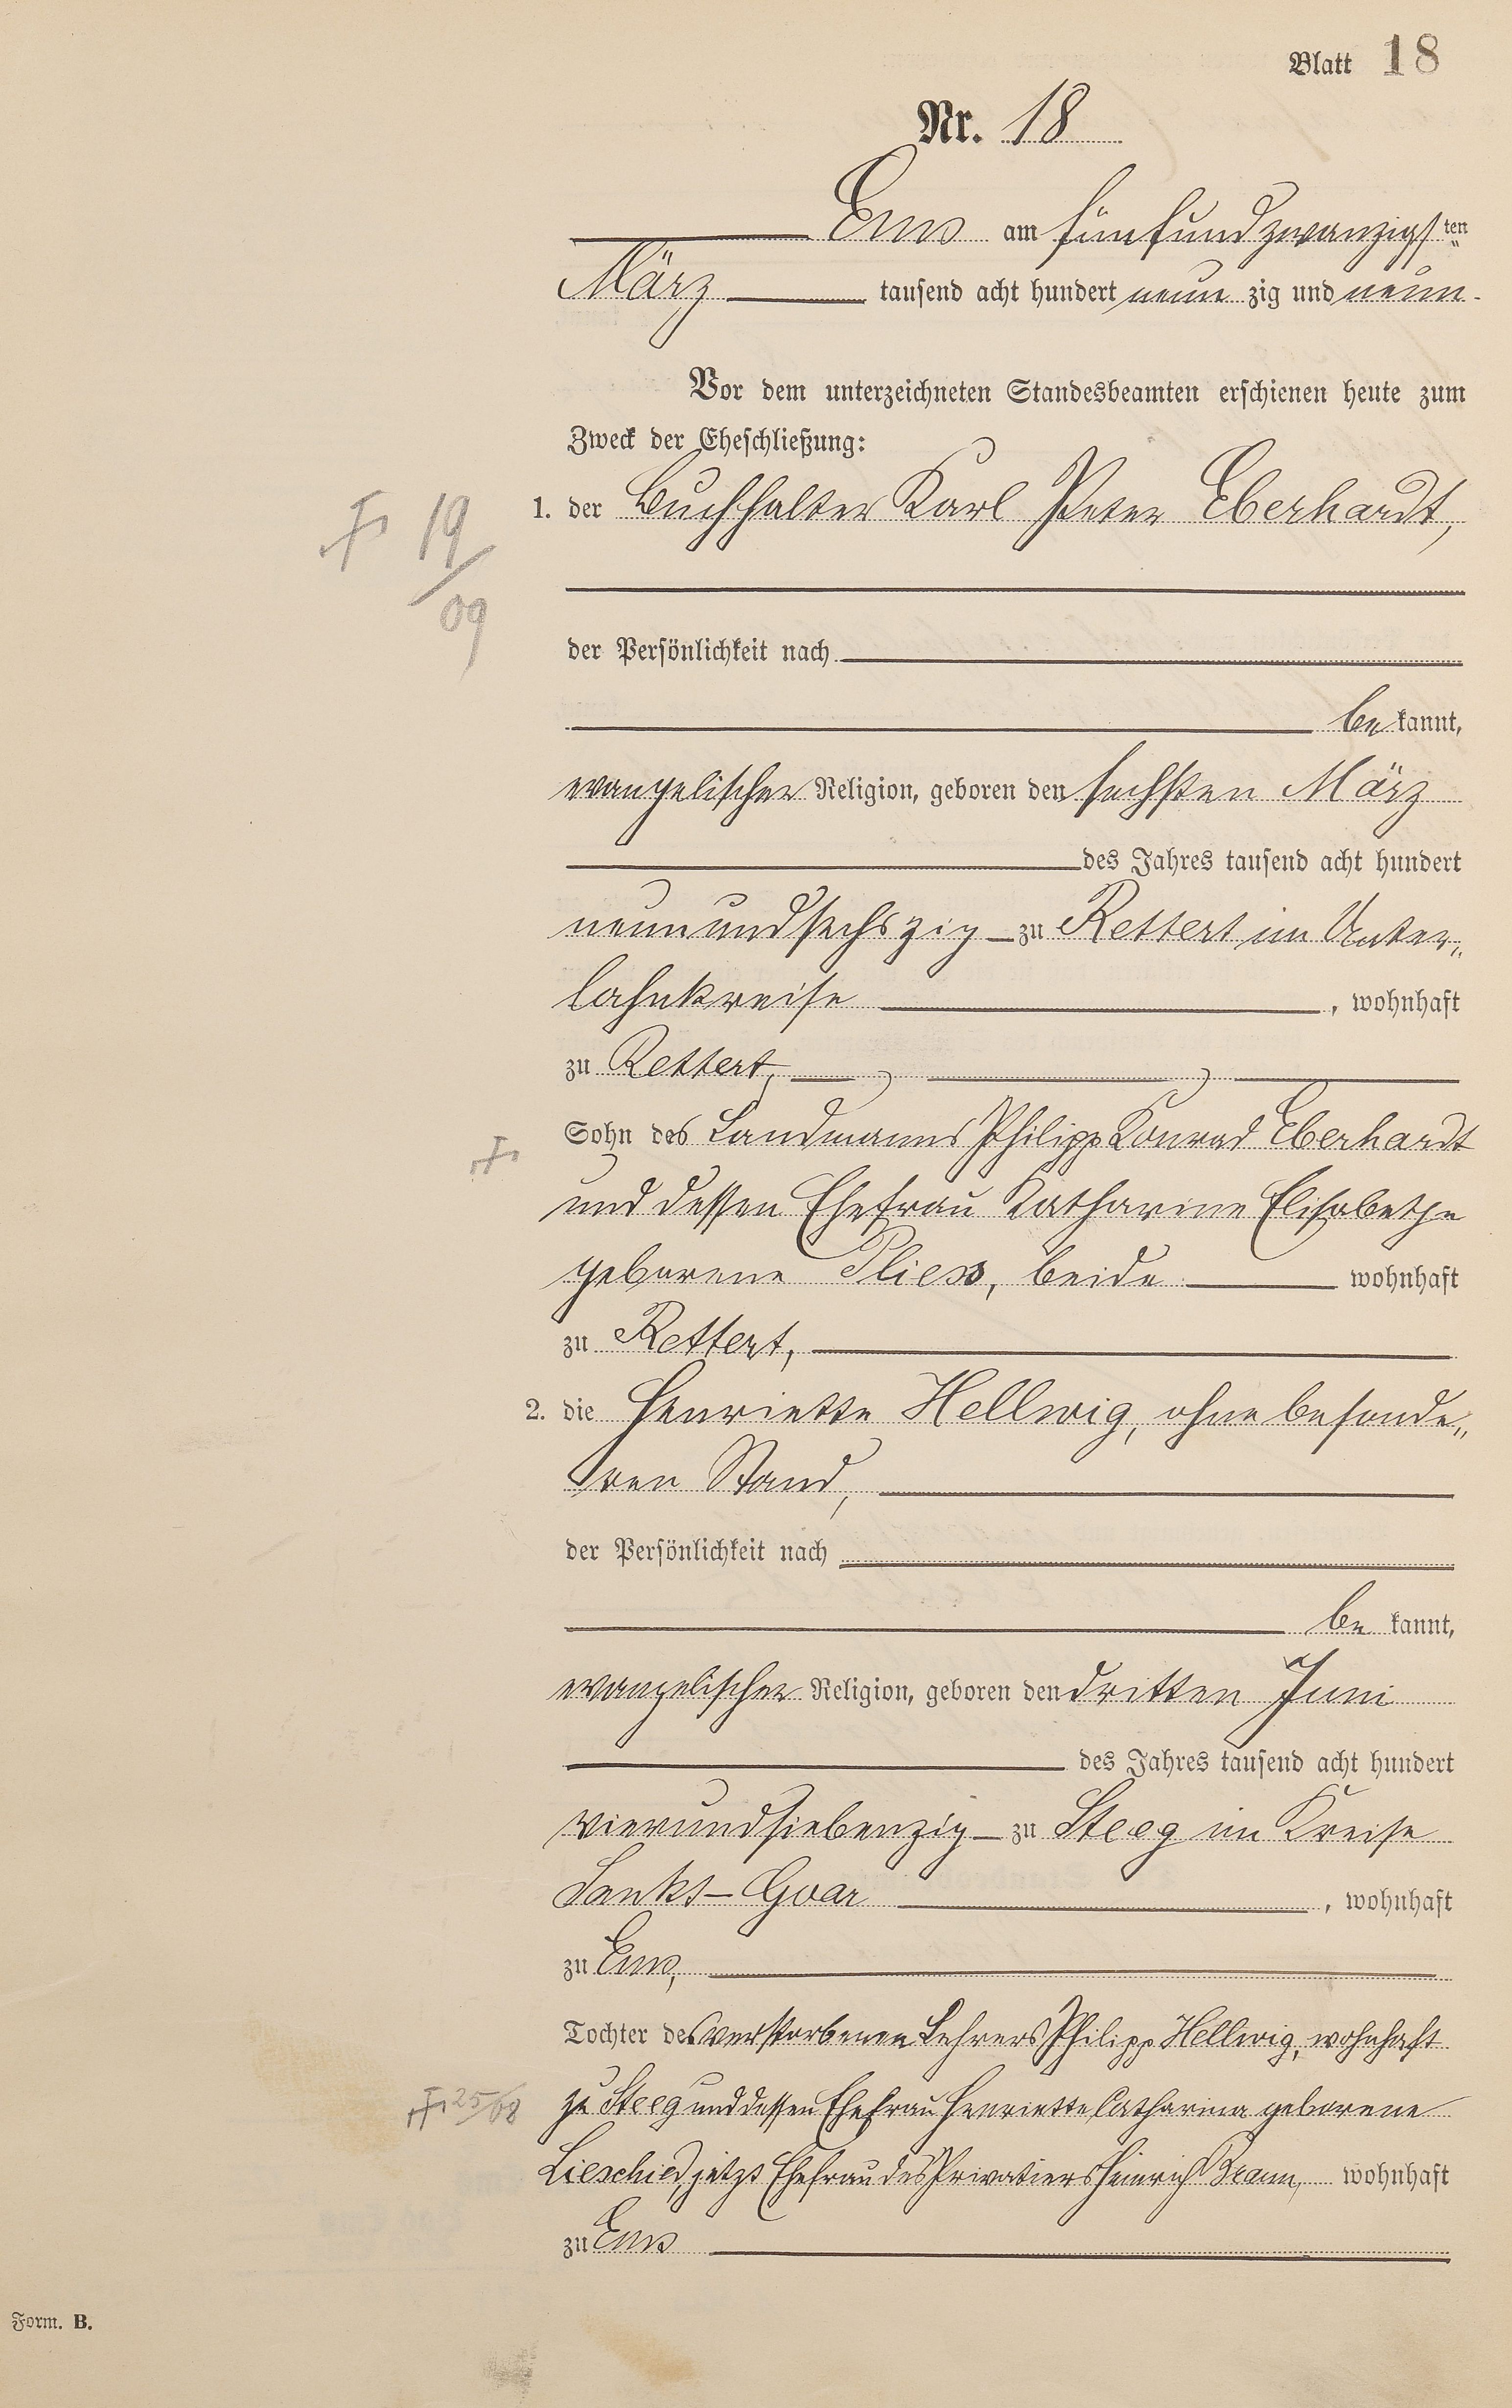 Blatt 18
Nr. 18
Ems am fünfundzwanzigsten
März tausend acht hundert neun zig und neun
Vor dem unterzeichneten Standesbeamten erschienen heute zum
Zweck der Eheschließung:
1. der Buchhalter Karl Peter Eberhardt,
19/09
der Persönlichkeit nach
be kannt,
evangelischer Religion, geboren den sechsten März
des Jahres tausend acht hundert
neunundsechszig zu Rettert im Unter„
lahnkreise, wohnhaft
zu Rettert,
Sohn des Landmanns Philipp Konrad Eberhardt
und dessen Ehefrau Katharine Elisabethe
geborene Pliess, beide wohnhaft
zu Rettert,
2. die Henriette Hellwig, ohne besonde„
ren Stand,
der Persönlichkeit nach
be kannt,
evangelischer Religion, geboren den dritten Juni
des Jahres tausend acht hundert
vierundsiebenzig zu Steeg im Kreise
Sankt-Goar, wohnhaft
zu Ems,
Tochter des verstorbenen Lehrers Philipp Hellwig, wohnhaft
25/08 zu Steeg und dessen Ehefrau Henriette Catharina geborene
Lieschied, jetzt Ehefrau des Privatiers Heinrich Braun, wohnhaft
zu Ems
Form. B.